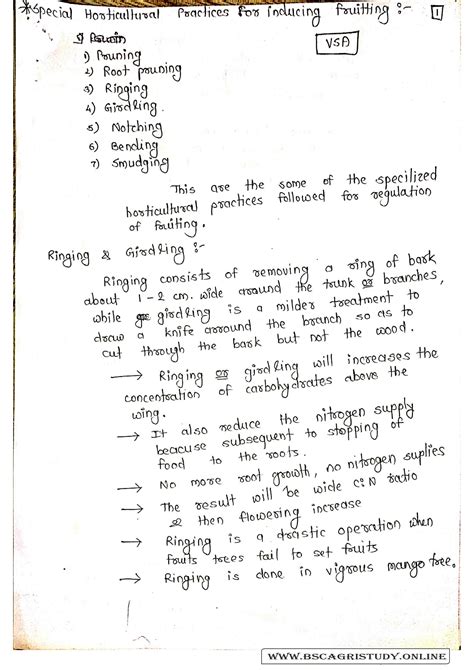 *Special Horticultural Practices for inducing fruitting :- 1
VSA
1) Pruning
2) Root pruning
3) Ringing
4) Girdling.
5) Notching
6) Bending
7) Smudging
This are the some of the specilized
horticultural practices followed for regulation
of fruiting.
Ringing & Girdling :-
Ringing consists of removing a ring of bark
about 1-2 cm. wide around the trunk or branches,
while girdling is a milder treatment to
draw a knife arround the branch so as to
cut through the bark but not the wood.
→ Ringing or girdling will increases the
concentration of carbohydrates above the
wing.
→ It also reduce the nitrogen supply
beacuse subsequent to stopping of
food to the roots.
→ No more root growth, no nitrogen suplies
→ The result will be wide C:N ratio
& then flowering increase
→ Ringing is a drastic operation when
fruits trees fail to set fruits
→ Ringing is done in vigrous mango tree.
WWW.BSCAGRISTUDY.ONLINE